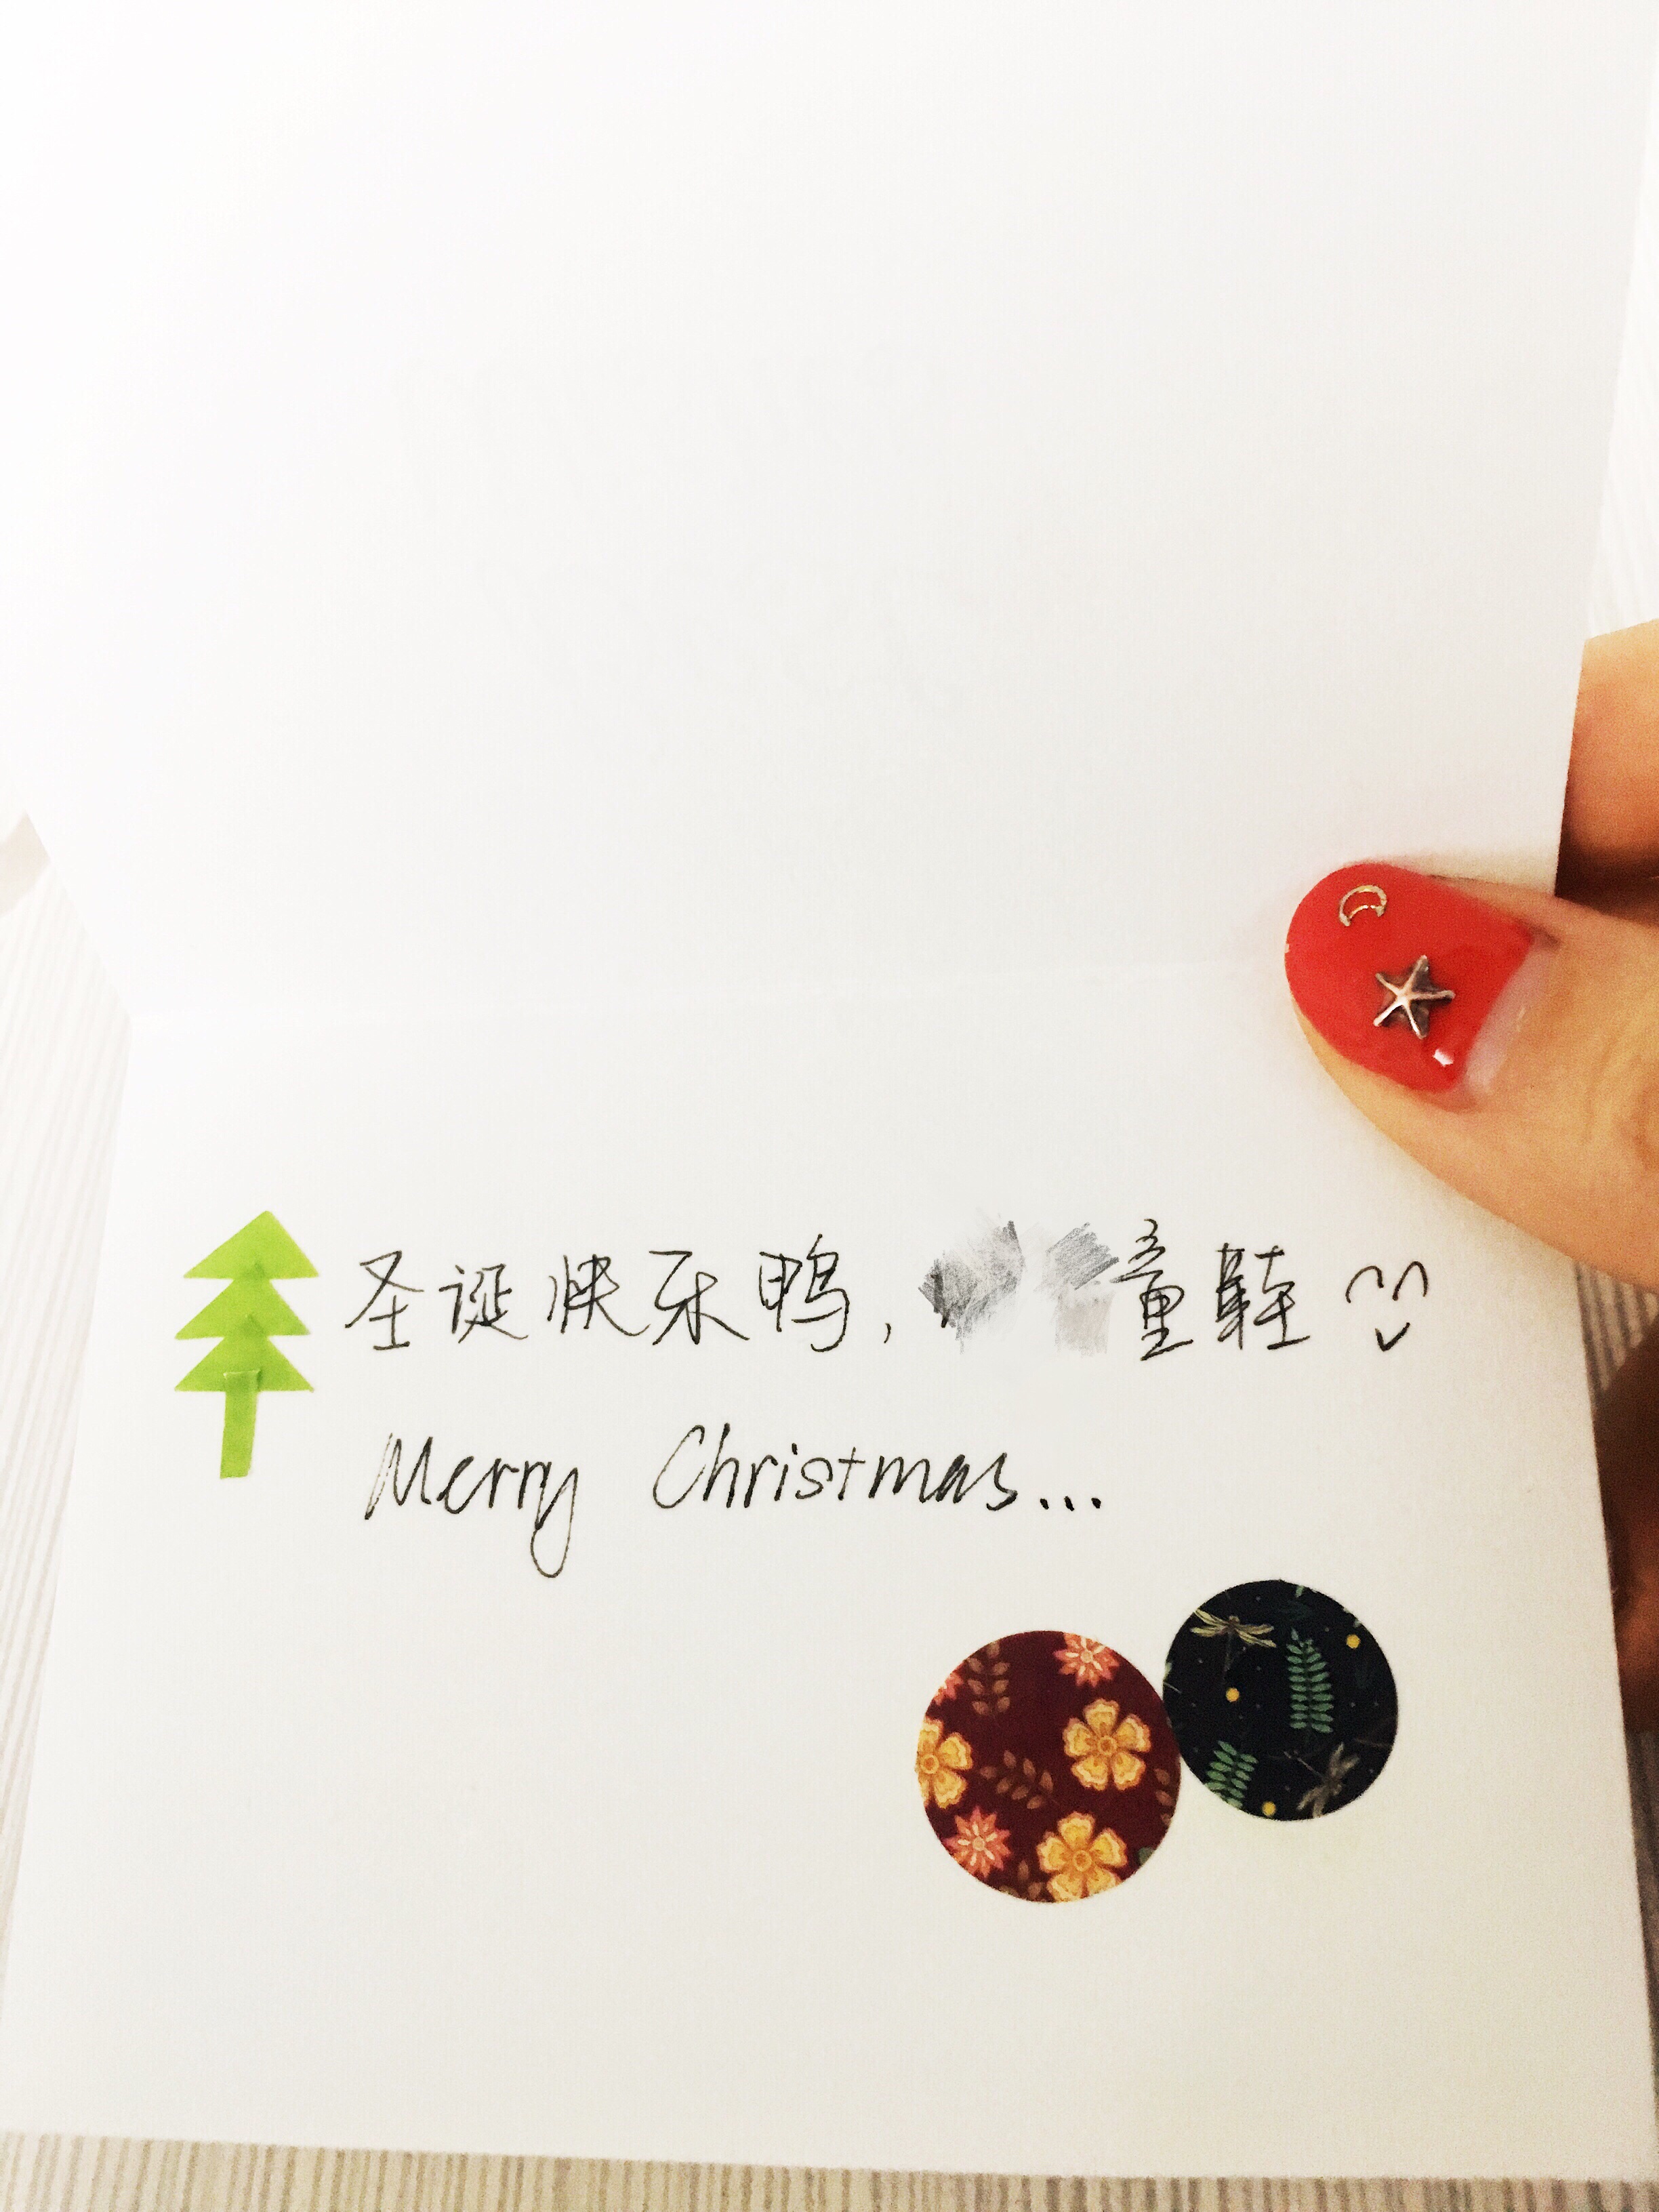 圣诞快乐鸭，童鞋
Merry Christmas...